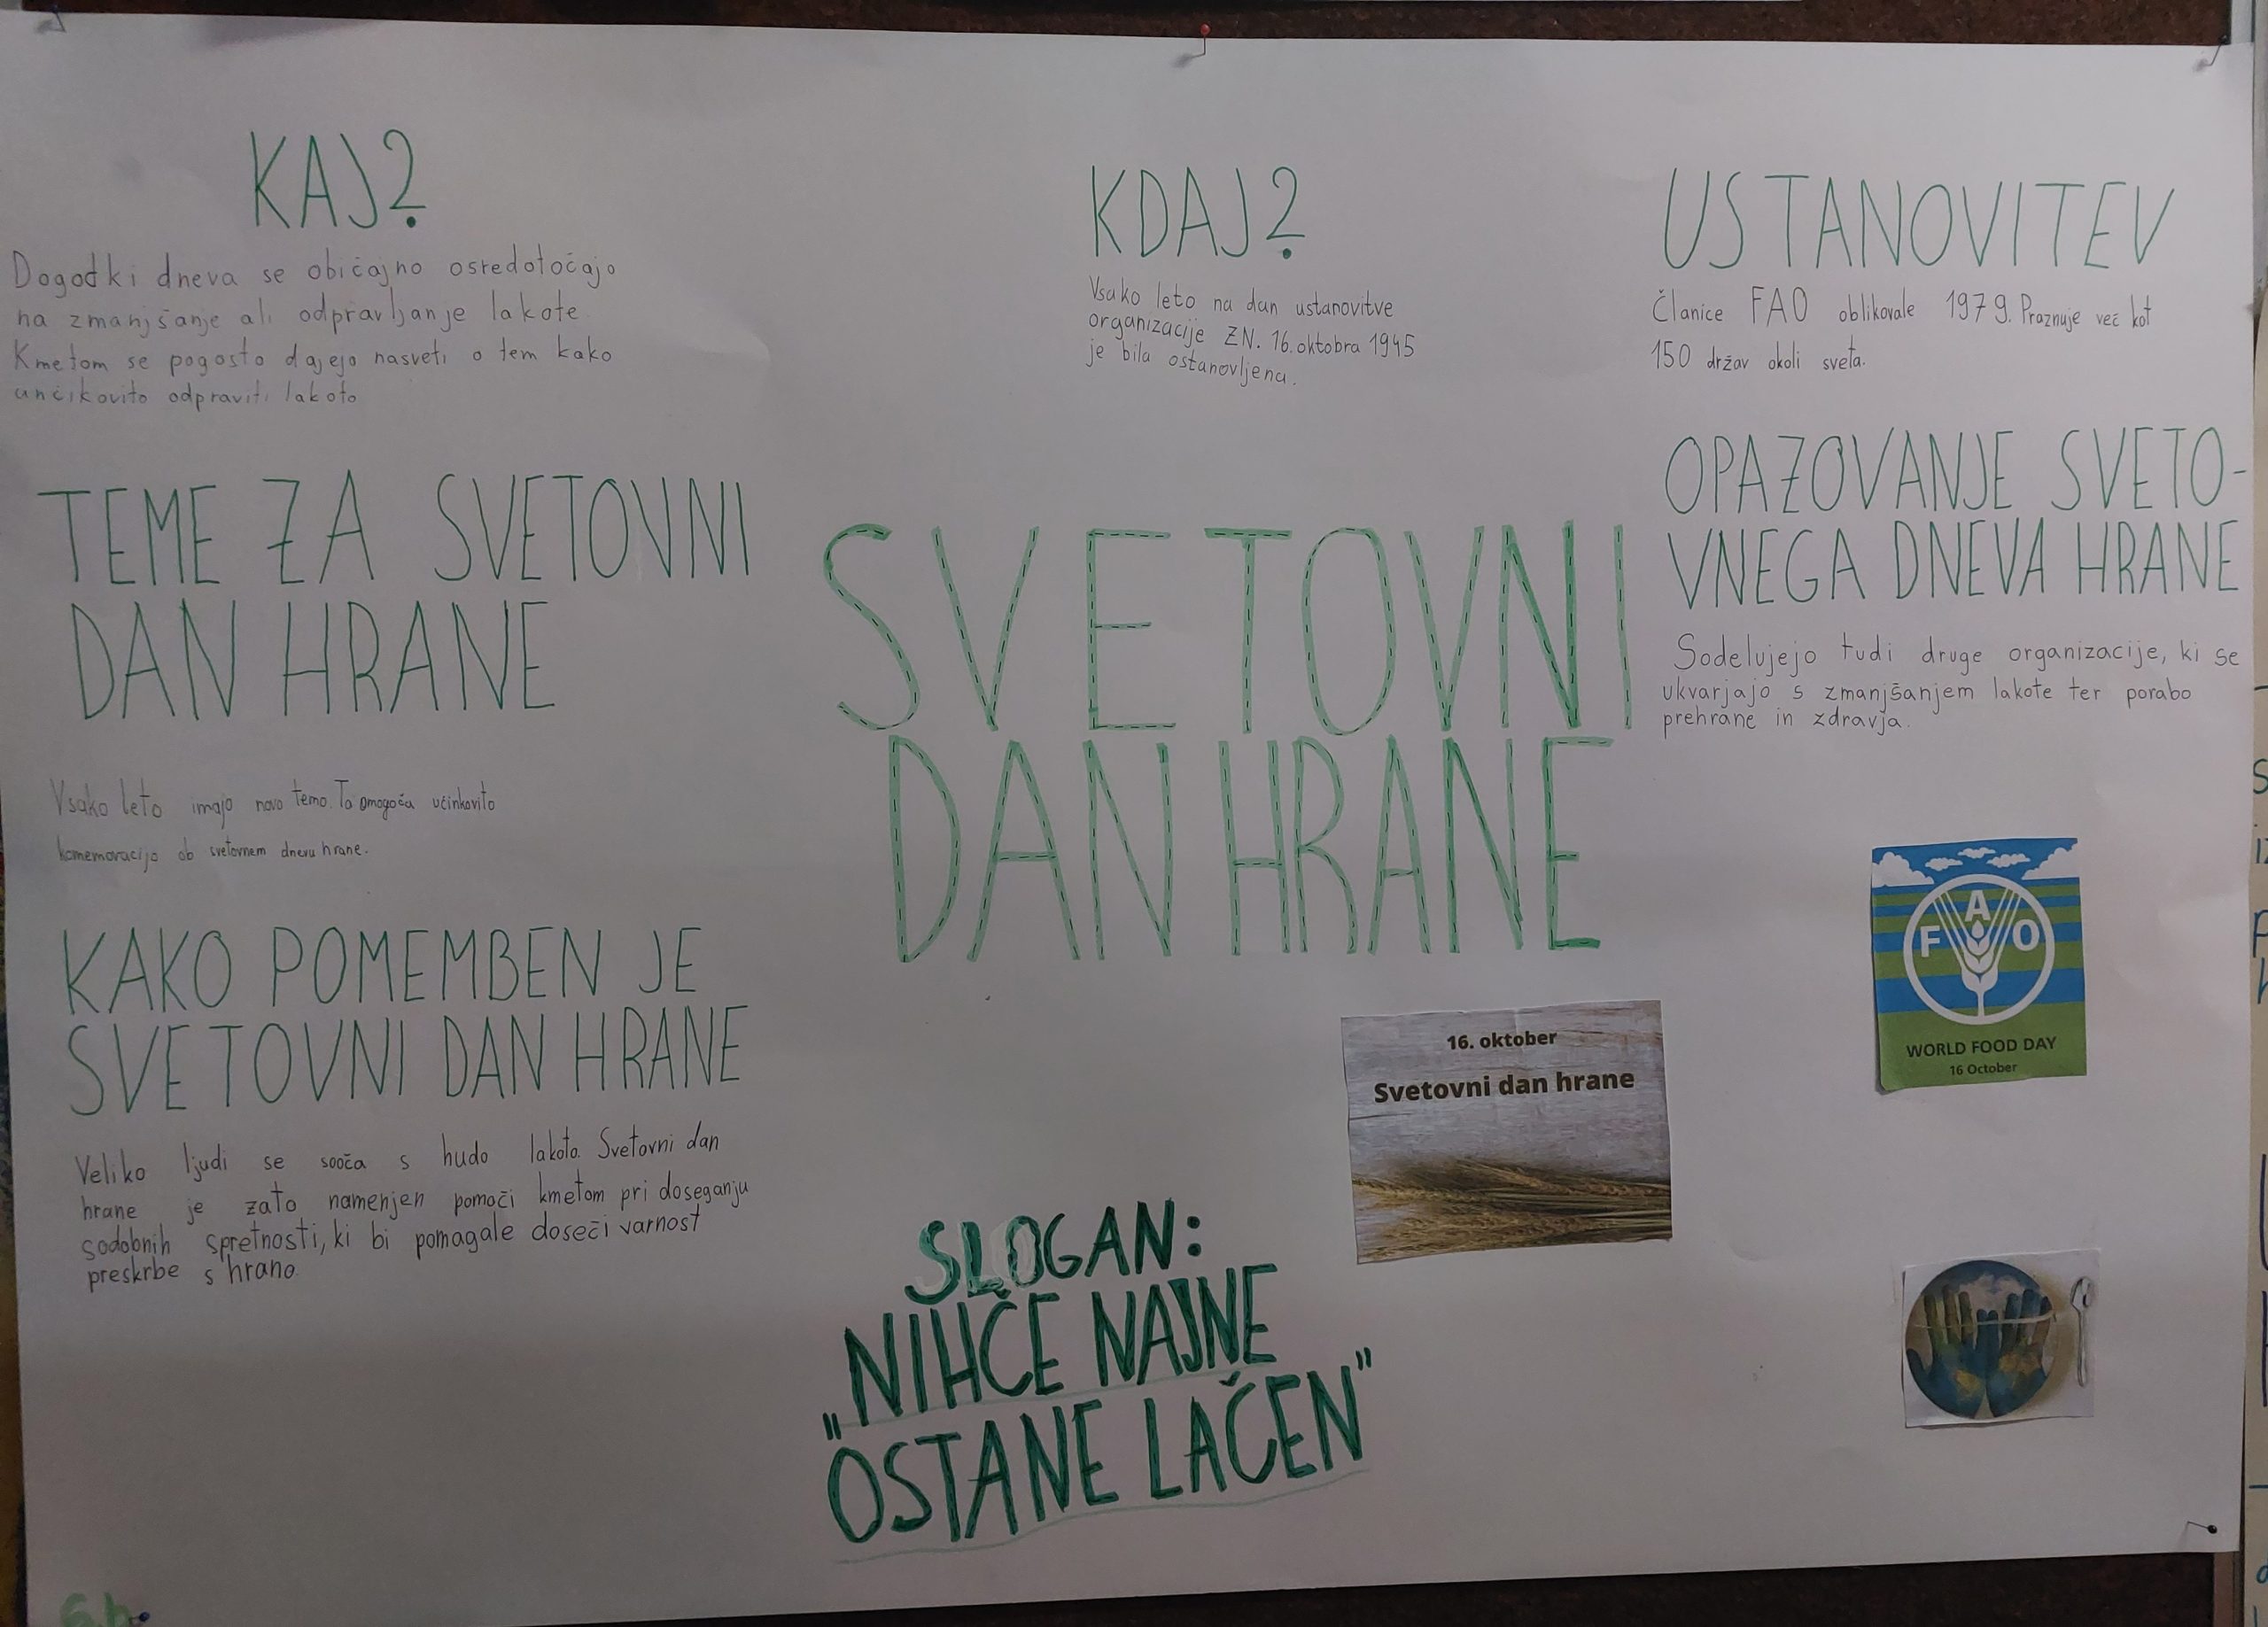 KAJ?
Dogodki dneva se običajno osredotočajo
na zmanjšanje ali odpravljanje lakote.
Kmetom se pogosto dajejo nasveti o tem kako
unčikovito odpraviti lakoto
TEME ZA SVETOVNI
DAN HRANE
Vsako leto imajo novo temo. To omogoča učinkovito
komemoracijo ob svetovnem dnevu hrane.
KAKO POMEMBEN JE
SVETOVNI DAN HRANE
Veliko ljudi se sooča s hudo lakoto. Svetovni dan
hrane je zato namenjen pomoči kmetom pri doseganju
sodobnih spretnosti, ki bi pomagale doseči varnost
preskrbe s hrano.
KDAJ?
Vsako leto na dan ustanovitve
organizacije ZN. 16. oktobra 1945
je bila ostanovljena.
SVETOVNI
DAN HRANE
SLOGAN:
„NIHČE NAJNE
OSTANE LAČEN"
USTANOVITEV
Članice FAO oblikovale 1979. Praznuje več kot
150 držav okoli sveta.
OPAZOVANJE SVETO-
VNEGA DNEVA HRANE
Sodelujejo tudi druge organizacije, ki se
ukvarjajo s zmanjšanjem lakote ter porabo
prehrane in zdravja.
16. oktober
Svetovni dan hrane
F A O
WORLD FOOD DAY
16 October